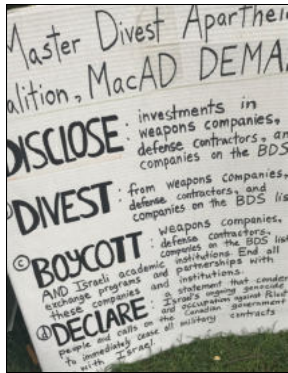 Master Divest Aparthei
alition, MacAD DEMA
DISCLOSE: investments in
weapons companies,
defense contractors, an
companies on the BDS
DIVEST: from weapons companies,
defense contractors, and
companies on the BDS lis
© BOYCOTT weapons companies,
defense contractors,
companies on the BDS list
AND Israeli academic institutions. End all
exchange programs and partnerships with
these companies and institutions.
ⓓ DECLARE: a statement that condem
Israel's ongoing genocide
and occupation against Pales
people and calls on the Canadian government
to immediately cease all military contracts
with Israel.